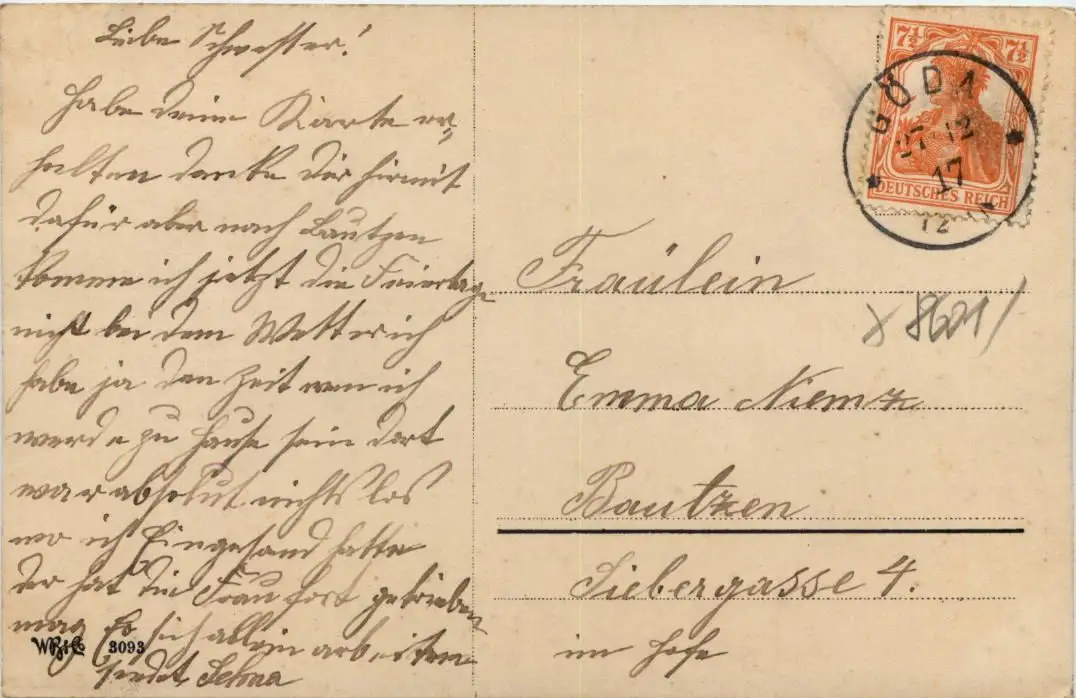 Liebe Schwester!
Habe deine Karte er-
halten danke Dir hirmit
dafür aber nach Bautzen
komme ich jetzt die Feiertage
nicht bei dem Wetter ich
habe ja den Zeit wen ich
werde zu Hause sein dort
war absolut nichts los
wo ich hingesand hatte
der hat die Frau fort getrieben
mag Er sich allein arbeiten
sendet Selma
W.B.i.C. 3093
7½ 7½
DEUTSCHES REICH
GÖDA
27 12
17
12
Fräulein
8601
Emma Niemz
Bautzen
Siebergasse 4.
im Hofe